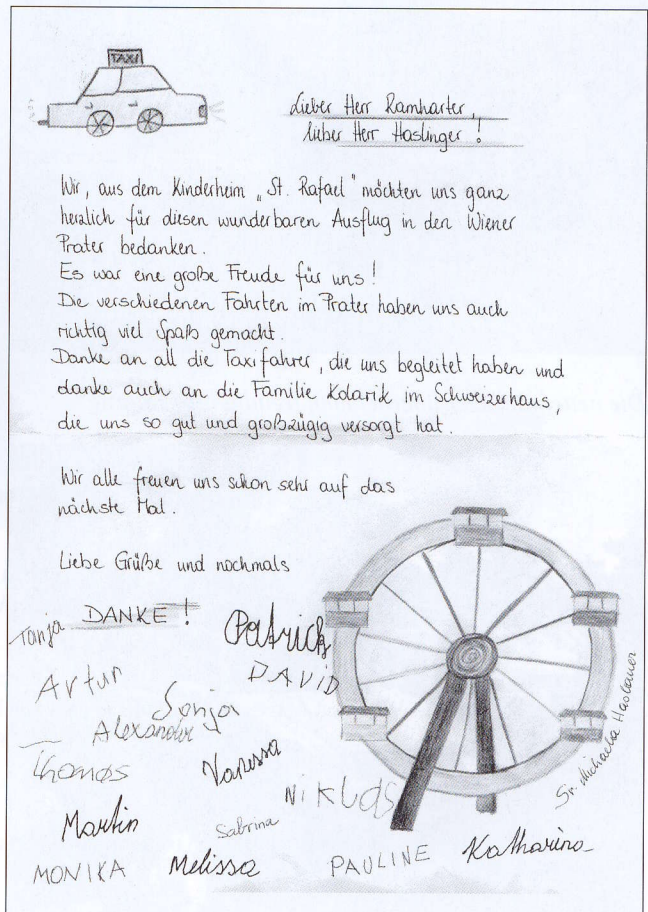 TAXI
Lieber Herr Ramharter,
lieber Herr Haslinger!
Wir, aus dem Kinderheim „St. Rafael" möchten uns ganz
herzlich für diesen wunderbaren Ausflug in den Wiener
Prater bedanken.
Es war eine große Freude für uns!
Die verschiedenen Fahrten im Prater haben uns auch
richtig viel Spaß gemacht.
Danke an all die Taxifahrer, die uns begleitet haben und
danke auch an die Familie Kolarik im Schweizerhaus,
die uns so gut und großzügig versorgt hat.
Wir alle freuen uns schon sehr auf das
nächste Mal.
Liebe Grüße und nochmals
DANKE!
Tanja
Patrick
Artur
DAVID
Sonja
Alexander
Thomas
Vanessa
NiKLas
Martin
Sabrina
MONIKA
Melissa
PAULINE
Katharina
Sr. Michaela